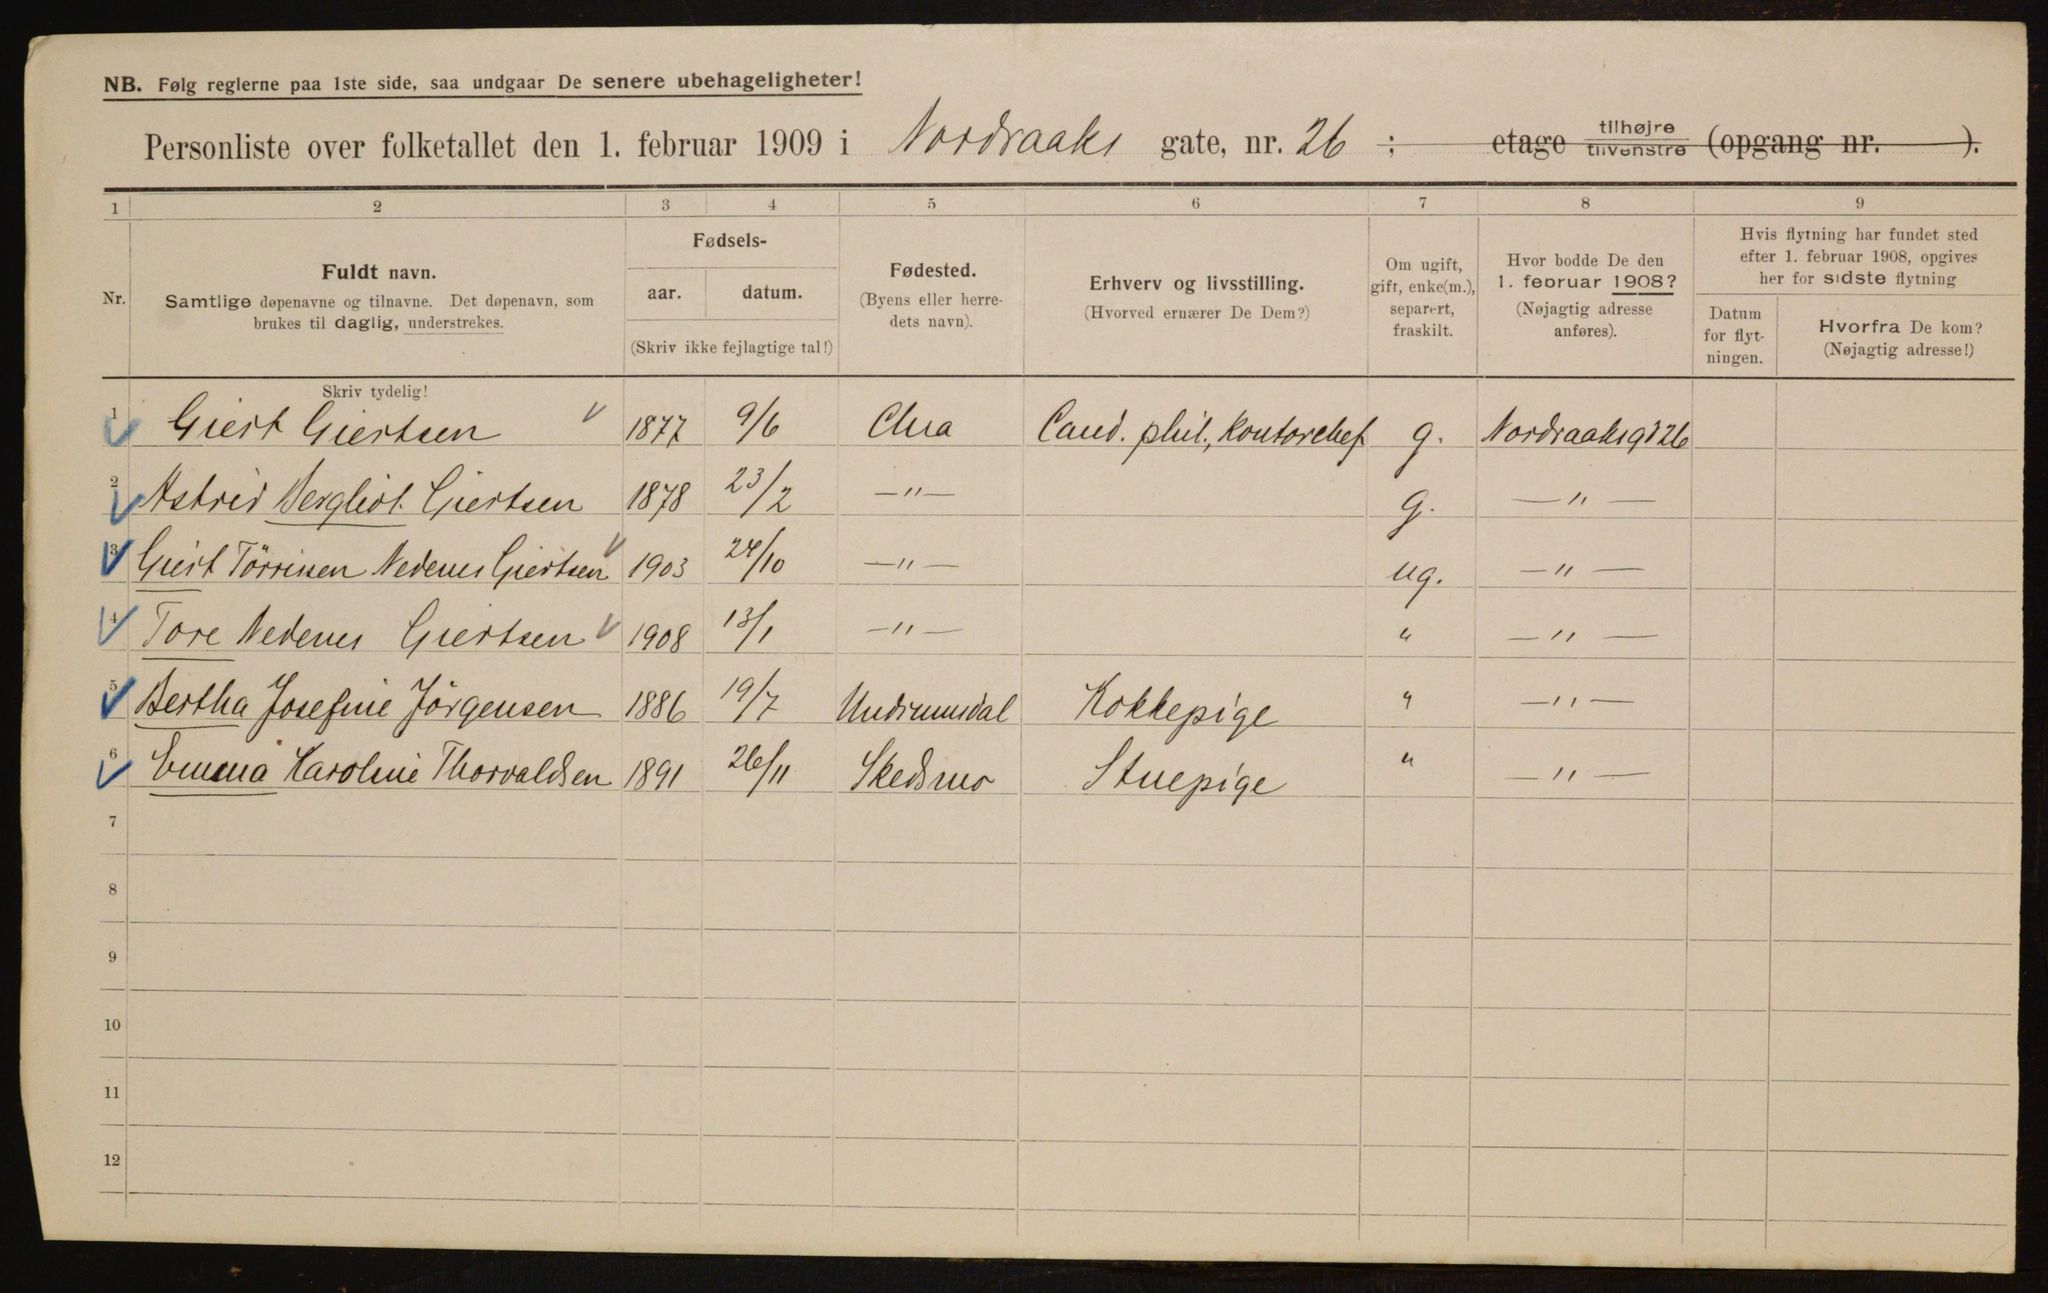 NB. Følg reglerne paa 1ste side, saa undgaar De senere ubehageligheter!
Personliste over folketallet den 1. februar 1909 i Nordraaks gate, nr. 26 ; etage tilhøjre tilvenstre (opgang nr. ).
1 2 3 4 5 6 7 8 9
Nr.
Fuldt navn.
Samtlige døpenavne og tilnavne. Det døpenavn, som
brukes til daglig, understrekes.
Fødsels-
aar. datum.
(Skriv ikke fejlagtige tal!)
Fødested.
(Byens eller herre-
dets navn).
Erhverv og livsstilling.
(Hvorved ernærer De Dem?)
Om ugift,
gift, enke(m.),
separert,
fraskilt.
Hvor bodde De den
1. februar 1908?
(Nøjagtig adresse
anføres).
Hvis flytning har fundet sted
efter 1. februar 1908, opgives
her for sidste flytning
Datum
for flyt-
ningen.
Hvorfra De kom?
(Nøjagtig adresse!)
Skriv tydelig!
1 Giert Giertsen 1877 9/6 Chra Cand. phil., Kontorchef g. Nordraaksgd 26
2 Astrid Bergliot Giertsen 1878 23/2 —"— g. —"—
3 Giert Törrissen Nedenes Giertsen 1903 24/10 —"— ug. —"—
4 Tore Nedenes Giertsen 1908 13/1 —"— " —"—
5 Bertha Josefine Jörgensen 1886 19/7 Undrumsdal Kokkepige " —"—
6 Emma Karoline Thorvaldsen 1891 26/11 Skedsmo Stuepige " —"—
7
8
9
10
11
12